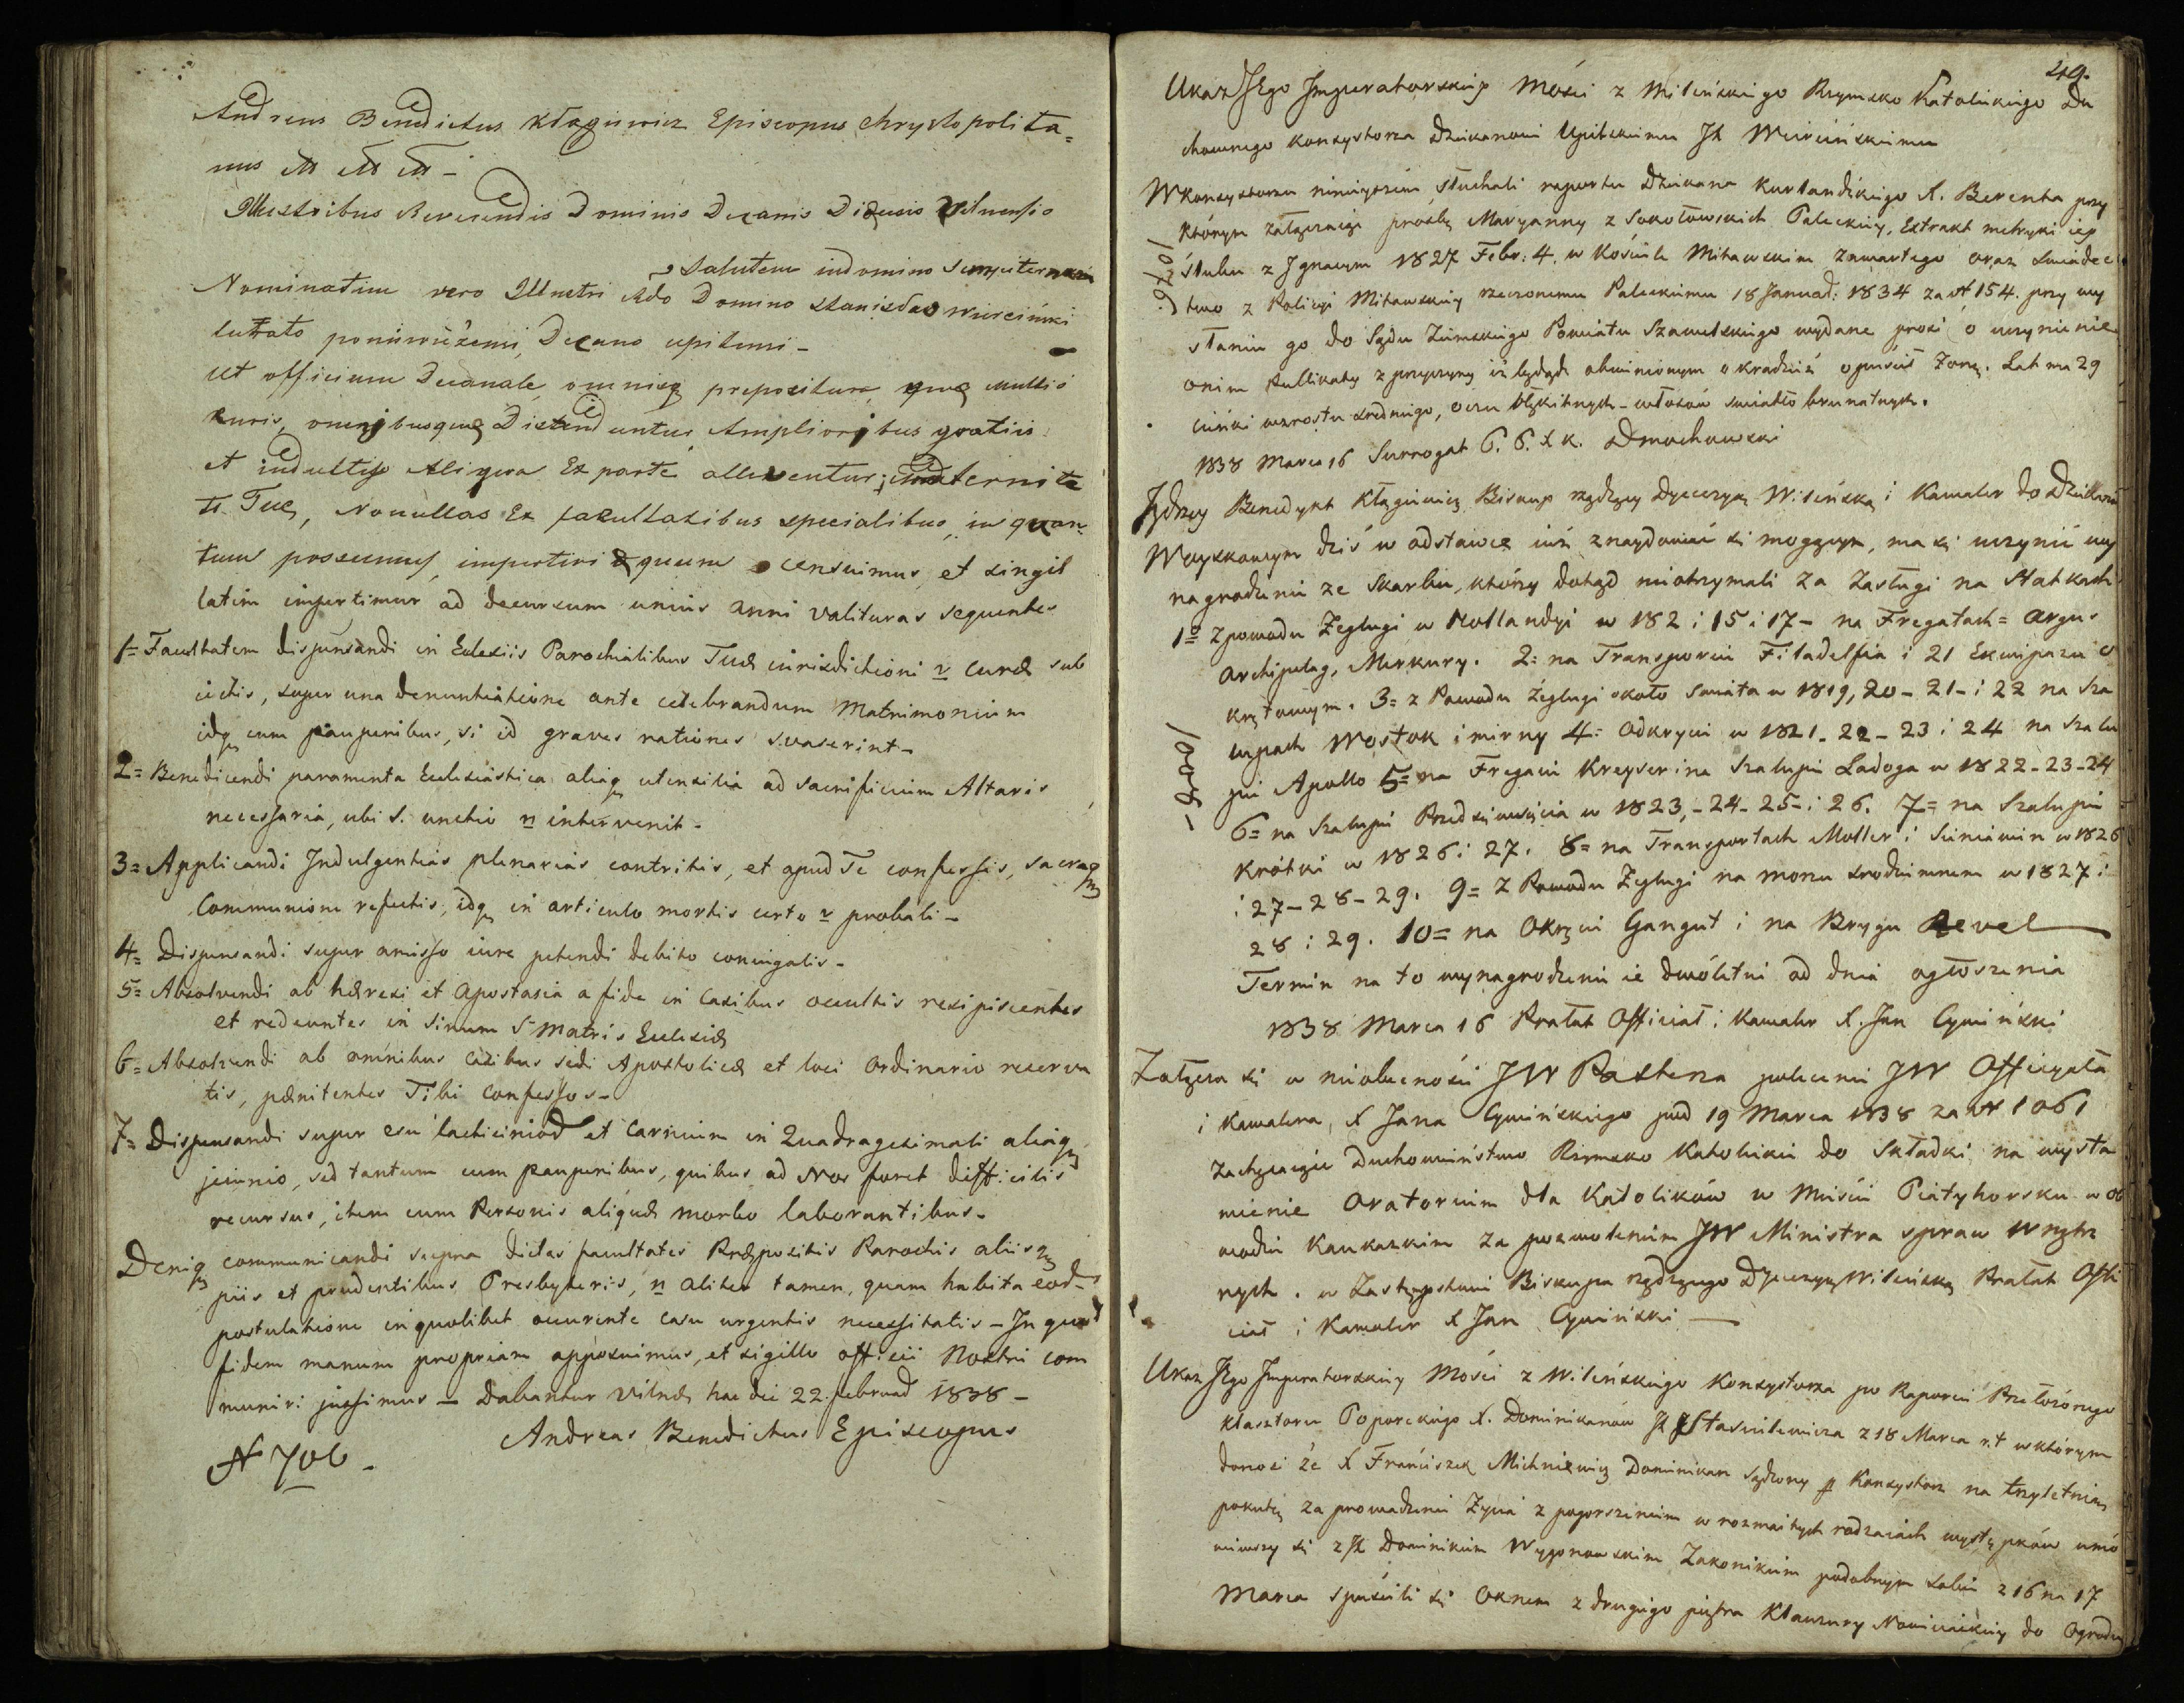 Andreas Benedictus Kłągiewicz Episcopus Chrystopolita-
nus M M M -
Illustribus Reverendis Dominis Decanis Dięcesis Vilnensis
Salutem in domino sempiternam
Nominatim vero Illustri Ado Domino Stanislao Wierciński
curato poniewieżensi, Decano upitensi -
Ut officium Decanale, omnisq prepositura, quę multis
curis, oneribusquę distenduntur, Amplioribus gratiis
et indultis Aliqua Ex parte alleventur; Fraternita
ti Tuę, Nonullas Ex facultatibus specialibus, in quan-
tum possumus, impertiri æquum censuimus, et singil
latim impertimur ad decursum unius anni valituras sequentes
1= Facultatem dispensandi in Eclesiis Parochialibus Tuæ iurisdictioni v curæ sub
iectis, super una denuntiatione ante celebrandum Matrimonium
idq cum pauperibus, si id graves rationes svaserint -
2= Benedicendi paramenta Ecclesiastica aliaq utensilia ad Sacrificium Altaris
necessaria, ubi S. unctio n intervenit -
3= Applicandi Indulgentias plenarias contritis, et apud Te confessis, sacraq
Communione refectis, idq in articulo mortis certo v probali -
4= Dispensandi super amisso iure petendi debito coniugalis -
5= Absolvendi ab hæresi et Apostasia a fide in Casibus occultis resipiscentes
et redeuntes in Sinum S Matris Eclesiæ
6= Absolvendi ab omnibus casibus sedi Apostolicæ et loci ordinario reserva
tis, pænitentes Tibi confessos -
7= Dispensandi super esu lacticiniod et carnium in Quadragesimali aliaq
jeiunio, sed tantum cum pauperibus, quibus ad Nos foret difficilis
recursus, item cum Personis aliqua morbo laborantibus -
Deniq communicandi supra dictas facultates Præpositis Parochis aliisq
piis et prudentibus Presbyteris, n aliter tamen, quam habita eod
postulatione in quolibet occurente casu urgentis necessitatis - In quod
fidem manum propriam apposuimus, et sigillo officii Nostri com
muniri jussimus - Dabantur Vilnæ hac die 22 februad 1838 -
Andreas Benedictus Episcopus
N 706 -
49.
Ukaz JEgo Imperatorskiey Mości z Wileńskiego Rzymsko Katolickiego Du
chownego Konsystorza Dziekanowi Upitskiemu JX Wiercińskiemu
W konsystorzu ninieyszem słuchali raportu Dziekana Kurlandzkiego X. Berenta przy
którym załączaiąc prośbę Maryanny z Sokołowskich Paleckiey, Extrakt metryki iey
Ślubu z Ignacym 1827 Febr: 4. w Kościele Mitawskim zawartego oraz Swiadec
two z Policyi Mitawskiey rzeczonemu Paleckiemu 18 Januad: 1834 za N 154. przy wy
słaniu go do Sądu Ziemskiego Powiatu Szawelskiego wydane prosi o uczynienie
onim Publikaty z przyczyny iż będąc obwinionym o kradzież opuścił Żonę. Lat ma 29
wzrostu sredniego, oczu błękitnych - włosów swiatło brunatnych.
1838 Marca 16 Surrogat 6. 6. X K. Dmochowski
1076.
Jędrzey Benedykt Kłągiewicz Biskup rządzący Dyecezyą Wileńską i Kawaler do Dziekana
Woyskowym dziś w odstawce iuż znaydować się mogącym, ma się uczynić wy
nagrodzenie ze Skarbu, którzy dotąd nieotrzymali za Zasługi na Statkach
1º Z powodu Żeglugi w Hollandyi w 182 i 15 i 17 - na Fregatach = Argus
Archipelag, Merkury. 2= na Transporcie Filadelfia i 21 Ekwipażu o
krętowym. 3= z Powodu Żeglugi około Swiata w 1819, 20 - 21 - i 22 na Sza
łupach Wostok i mirny 4= Odkrycie w 1821 - 22 - 23 i 24 na Szalu
pie Apollo 5= na Fregacie Kreyserina Szalupie Ladoga w 1822 - 23 - 24
6= na Szalupie Przedsięwzięcia w 1823, - 24 - 25 - i 26. 7= na Szalupie
Krótki w 1826 i 27. 8= na Transportach Moller i Seniawin w 1826
i 27 - 28 - 29. 9= z Powodu Żeglugi na morzu srodziemnem w 1827 i
28 i 29. 10= na Okręcie Gangut i na Brygu Revel
Termin na to wynagrodzenie ie dwóletni od dnia ogłoszenia
1838 Marca 16 Prałat Officiał i Kawaler X. Jan Cywiński
- 900/
Załącza się w nieobecności JW Pasterza polecenie JW Officyała
i Kawalera, X Jana Cywińskiego pod 19 Marca 1838 za N 1061
zachęcaiące Duchowieństwo Rzymsko Katolickie do Składki na wysta
wienie Oratorium dla Katolików w Mieście Piatyhorsku w ob
wodzie Kaukazkim za pozwoleniem JW Ministra spraw Wnętrz
nych. w Zastępstwie Biskupa rządzącego Dyecezyą Wileńską Prałat Offi
ciał i Kawaler X Jan Cywiński
Ukaz JEgo Imperatorskiey Mości z Wileńskiego Konsystorza po Raporcie Przełożonego
Klasztoru Poporckiego X. Dominikanów JX Stasiulewicza z 18 Marca r. t w którym
donosi że X Franciszek Michniewicz Dominikan sądzony p Konsystorz na trzyletnią
pokutę za prowadzenie Życia z pogorszeniem w rozmaitych rodzaiach występków umó
wiwszy się z JX Dominikiem Wygonowskim Zakonnikiem podobnym sobie z 16 na 17
Marca spuścili się Oknem z drugiego piętra Klauzury Nowiciackiey do Ogrodu